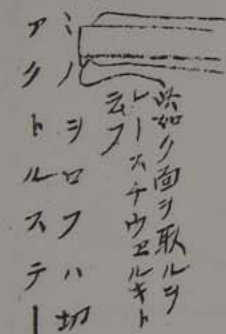 此如ク面ヲ取ルヲ
レースチウヱルキト
云フ
ミノシロフハ切
アクトルステー